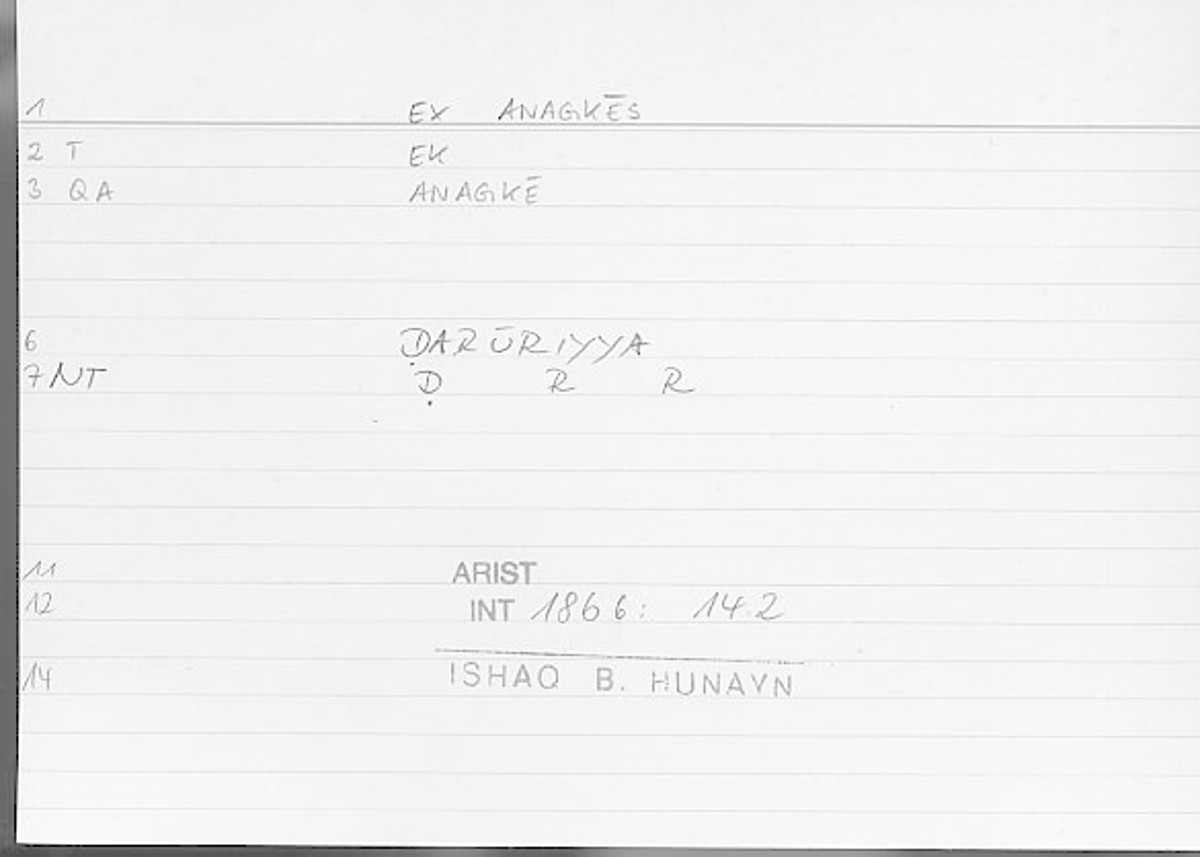 1 EX ANAGKĒS
2 T EK
3 QA ANAGKĒ
6 ḌARŪRIYYA
7 NT Ḍ R R
11 ARIST
12 INT 1866: 14.2
14 ISHAQ B. HUNAYN